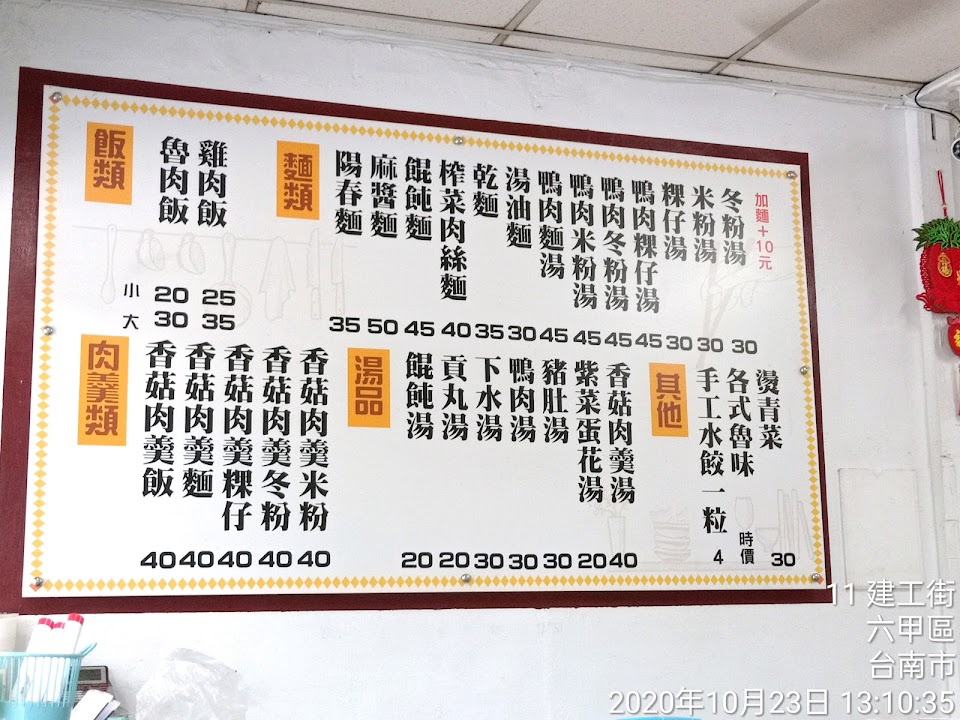 飯類
魯肉飯
雞肉飯
小 20 25
大 30 35
麵類
陽春麵
麻醬麵
餛飩麵
榨菜肉絲麵
乾麵
湯油麵
鴨肉麵湯
鴨肉米粉湯
鴨肉冬粉湯
鴨肉粿仔湯
粿仔湯
米粉湯
冬粉湯
加麵+10元
35 50 45 40 35 30 45 45 45 45 30 30 30
肉羹類
香菇肉羹飯
香菇肉羹麵
香菇肉羹粿仔
香菇肉羹冬粉
香菇肉羹米粉
40 40 40 40 40
湯品
餛飩湯
貢丸湯
下水湯
鴨肉湯
豬肚湯
紫菜蛋花湯
香菇肉羹湯
20 20 30 30 30 20 40
其他
手工水餃一粒
各式魯味
燙青菜
4 時價 30
11 建工街
六甲區
台南市
2020年10月23日 13:10:35